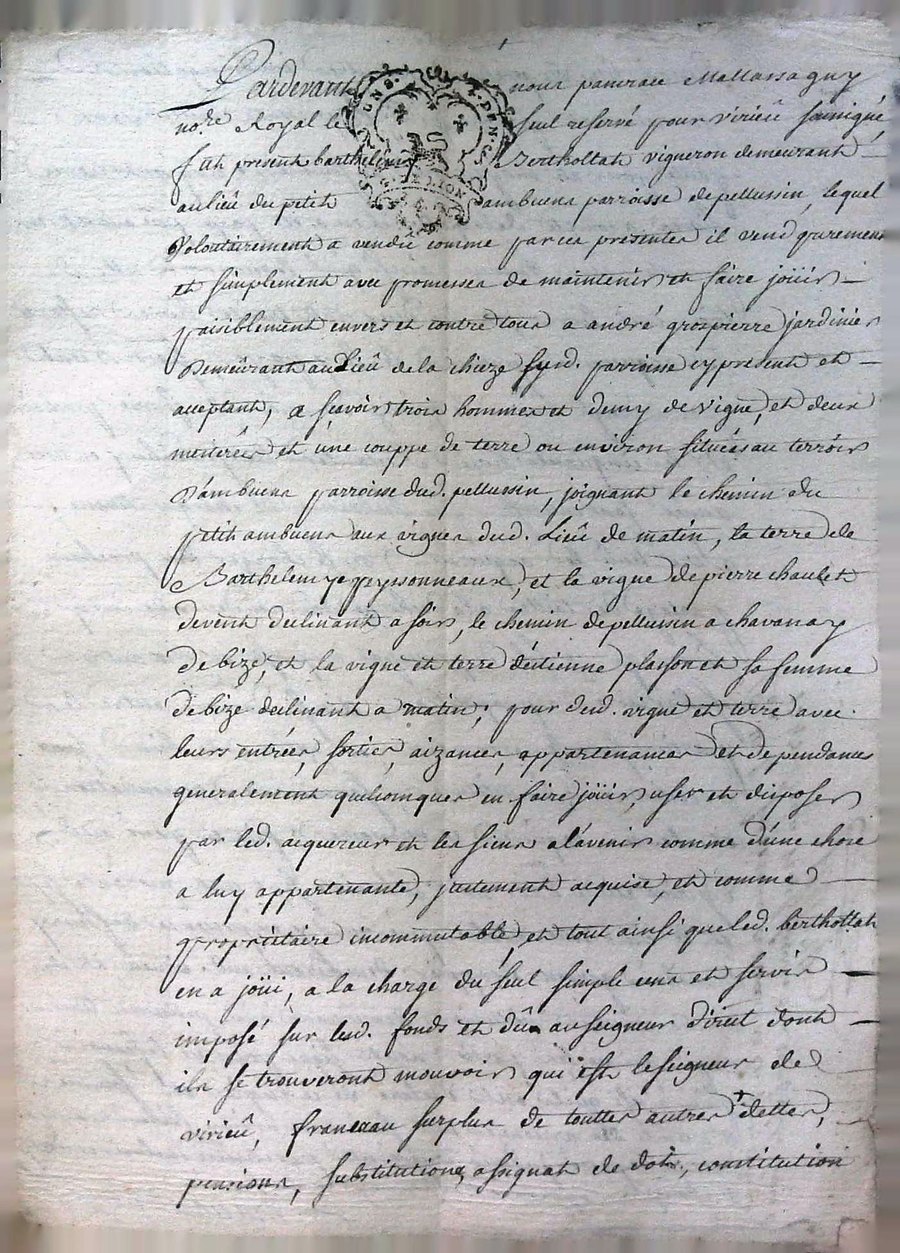 Pardevant nous pancrace Mallassagny
no.re Royal le seul reservé pour virieû soussigné
fut present barthelemy Bertholtat vigneron demeurant
au lieû du petit ambuens parroisse de pellussin, lequel
volontairement a vendû comme par ces presentes il vend purement
et simplement avec promesses de maintenir et faire joüir
paisiblement envers et contre tous a andré grospierre jardinier
Demeûrant au Lieû de la chieze susd. parroisse cy present et
acceptant, a sçavoir trois hommes et demy de vigne, et deux
meiterées et une couppe de terre ou environ situées au terroir
D'ambuens parroisse dud. pellussin, joignant le chemin du
petit ambuens aux vignes dud. Lieû de matin, la terre de
Barthelemy peyssonneaux, et la vigne de pierre chaulet
de vent declinant a soir, le chemin de pellussin a chavanay
de bize, et la vigne et terre d'estienne plasson et sa femme
de bize declinant a matin; pour desd. vigne et terre avec
leurs entrées, sorties, aizances, appartenances et dependances
generalement quelconques en faire joüir, user et disposer
par led. acquereur et les siens a l'avenir comme d'une chose
a luy appartenante, justement acquise, et comme
propriétaire incommutable, et tout ainsi que led. bertholtat
en a joüi, a la charge du seul simple cens et servis
imposé sur lesd. fonds et dûs au seigneur direct dont
ils se trouveront mouvoir qui est le seigneur de
virieû, francs au surplus de touttes autres + dettes,
pensions, substitutions, assignat de dots, constitution